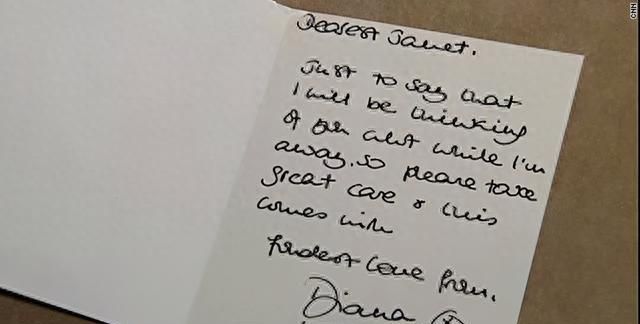 Dearest Janet.
Just to say that
I will be thinking
of you alot while I'm
away. so please take
great care & this
comes with
fondest love from.
Diana
CNN